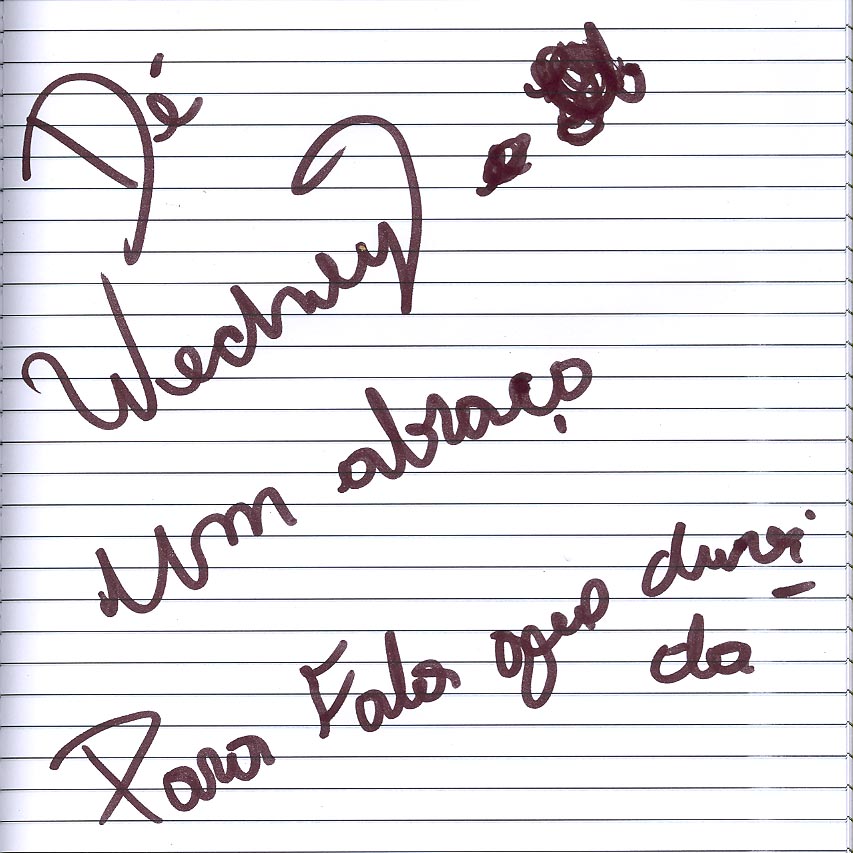 Dé
Wedney
Um abraço
Para Fala oque duvi-
da